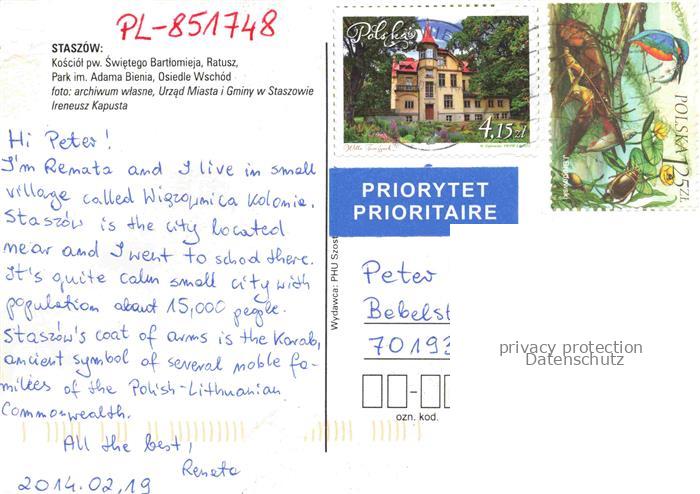 PL-851748
STASZÓW:
Kościół pw. Świętego Bartłomieja, Ratusz,
Park im. Adama Bienia, Osiedle Wschód
foto: archiwum własne, Urząd Miasta i Gminy w Staszowie
Ireneusz Kapusta
Hi Peter!
I'm Renata and I live in small
village called Wiązownica Kolonia.
Staszów is the city located
near and I went to school there.
It's quite calm small city with
population about 15,000 people.
Staszów's coat of arms is the Korab,
ancient symbol of several noble fa-
milies of the Polish-Lithuanian
Commonwealth.
All the best,
Renata
2014.02.19
Wydawca: PHU Szost
Polska
4,15 zł
POLSKA 1,25 ZŁ
PRIORYTET
PRIORITAIRE
Peter
Bebelst
70193
ozn. kod.
privacy protection
Datenschutz